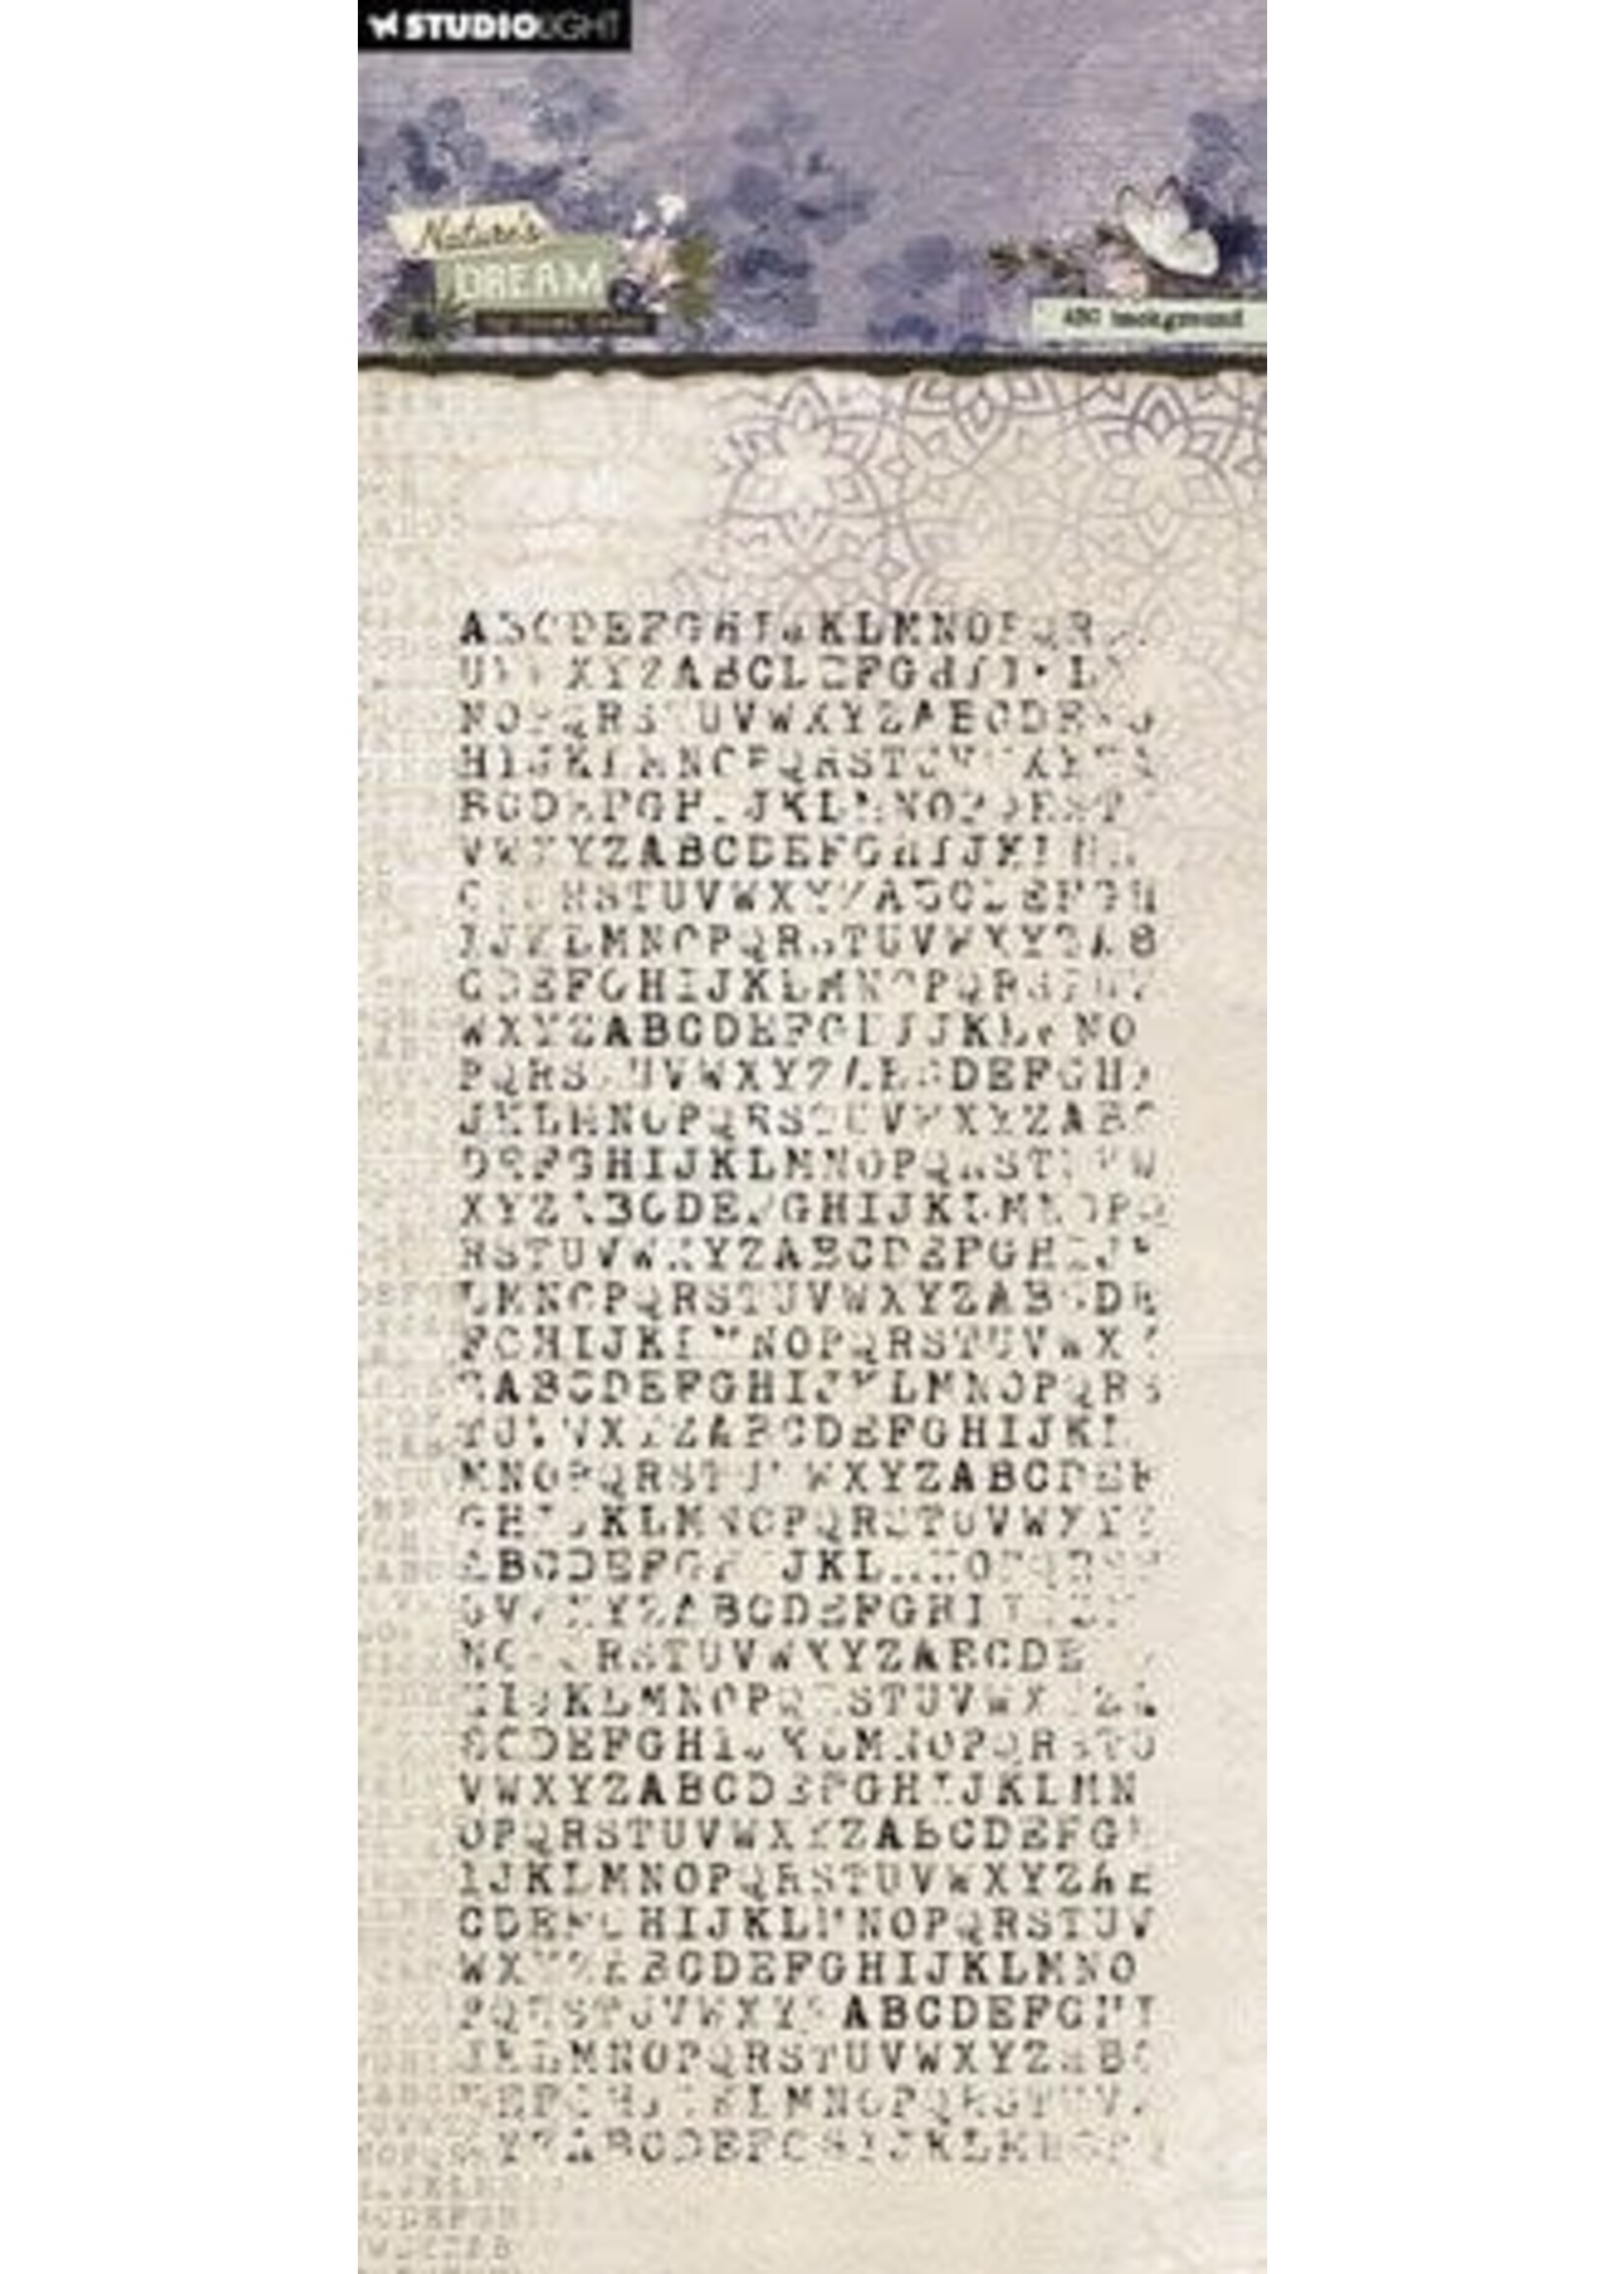 STUDIOLIGHT
Nature's
DREAM
ABC background
ABCDEFGHIJKLMNOPQR
UVWXYZABCDEFGHIJKL
NOPQRSTUVWXYZABCDEFG
HIJKLMNOPQRSTUVWXYZA
BCDEFGHIJKLMNOPQRST
VWXYZABCDEFGHIJKLMN
OPQRSTUVWXYZABCDEFGH
IJKLMNOPQRSTUVWXYZAB
CDEFGHIJKLMNOPQRSTUV
WXYZABCDEFGHIJKLMNO
PQRSTUVWXYZABCDEFGHI
JKLMNOPQRSTUVWXYZABC
DEFGHIJKLMNOPQRSTUVW
XYZABCDEFGHIJKLMNOPQ
RSTUVWXYZABCDEFGHIJK
LMNOPQRSTUVWXYZABCDE
FGHIJKLMNOPQRSTUVWXY
ZABCDEFGHIJKLMNOPQRS
TUVWXYZABCDEFGHIJKL
MNOPQRSTUVWXYZABCDEF
GHIJKLMNOPQRSTUVWXYZ
ABCDEFGHIJKLMNOPQRST
UVWXYZABCDEFGHIJKLM
NOPQRSTUVWXYZABCDEFG
HIJKLMNOPQRSTUVWXYZA
BCDEFGHIJKLMNOPQRSTU
VWXYZABCDEFGHIJKLMN
OPQRSTUVWXYZABCDEFGH
IJKLMNOPQRSTUVWXYZAB
CDEFGHIJKLMNOPQRSTUV
WXYZABCDEFGHIJKLMNO
PQRSTUVWXYZABCDEFGHI
JKLMNOPQRSTUVWXYZABC
DEFGHIJKLMNOPQRSTUVW
XYZABCDEFGHIJKLMNOPQ